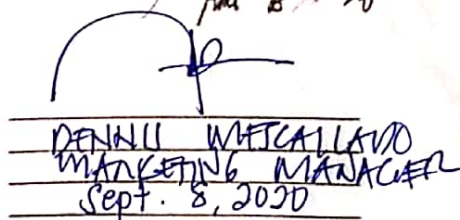 DENNIS MESCALLADO
MARKETING MANAGER
Sept. 8, 2020